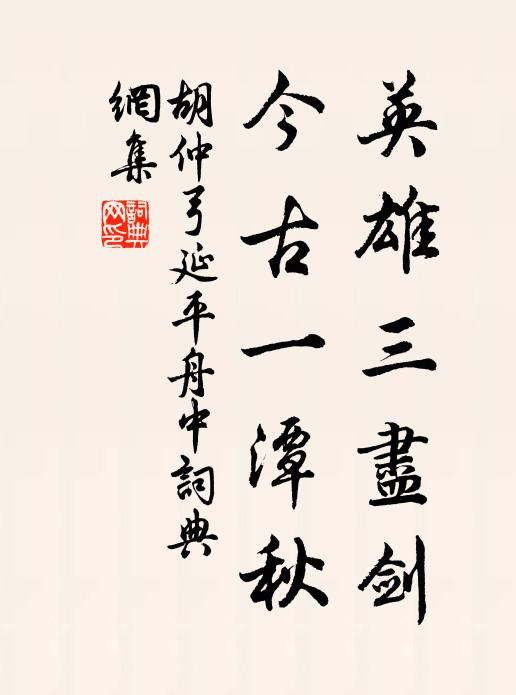 英雄三盡剑
今古一潭秋
胡仲弓延平舟中詞典
網集
詞典
网印